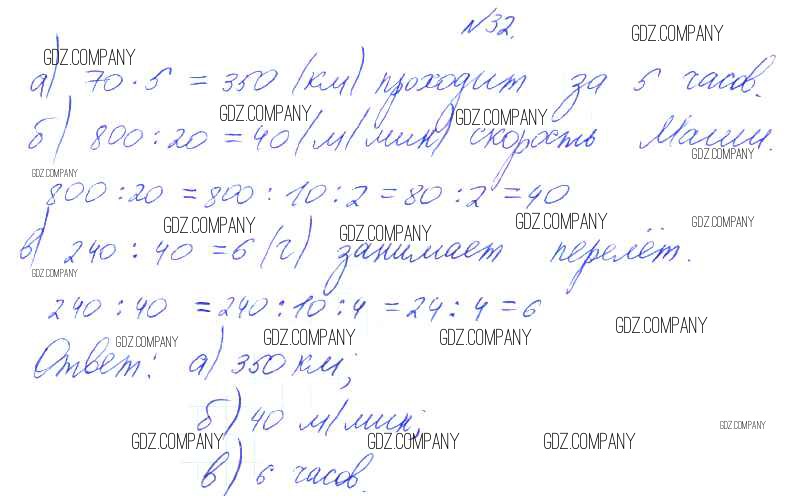 №32.
GDZ.COMPANY GDZ.COMPANY
а) 70 · 5 = 350 (км) проходит за 5 часов.
GDZ.COMPANY GDZ.COMPANY
б) 800 : 20 = 40 (м/мин) скорость Маши.
GDZ.COMPANY GDZ.COMPANY
800 : 20 = 800 : 10 : 2 = 80 : 2 = 40
GDZ.COMPANY GDZ.COMPANY GDZ.COMPANY GDZ.COMPANY
в) 240 : 40 = 6 (ч) занимает перелёт.
GDZ.COMPANY
240 : 40 = 240 : 10 : 4 = 24 : 4 = 6
GDZ.COMPANY GDZ.COMPANY GDZ.COMPANY GDZ.COMPANY
Ответ: а) 350 км;
б) 40 м/мин;
GDZ.COMPANY GDZ.COMPANY GDZ.COMPANY GDZ.COMPANY
в) 6 часов.